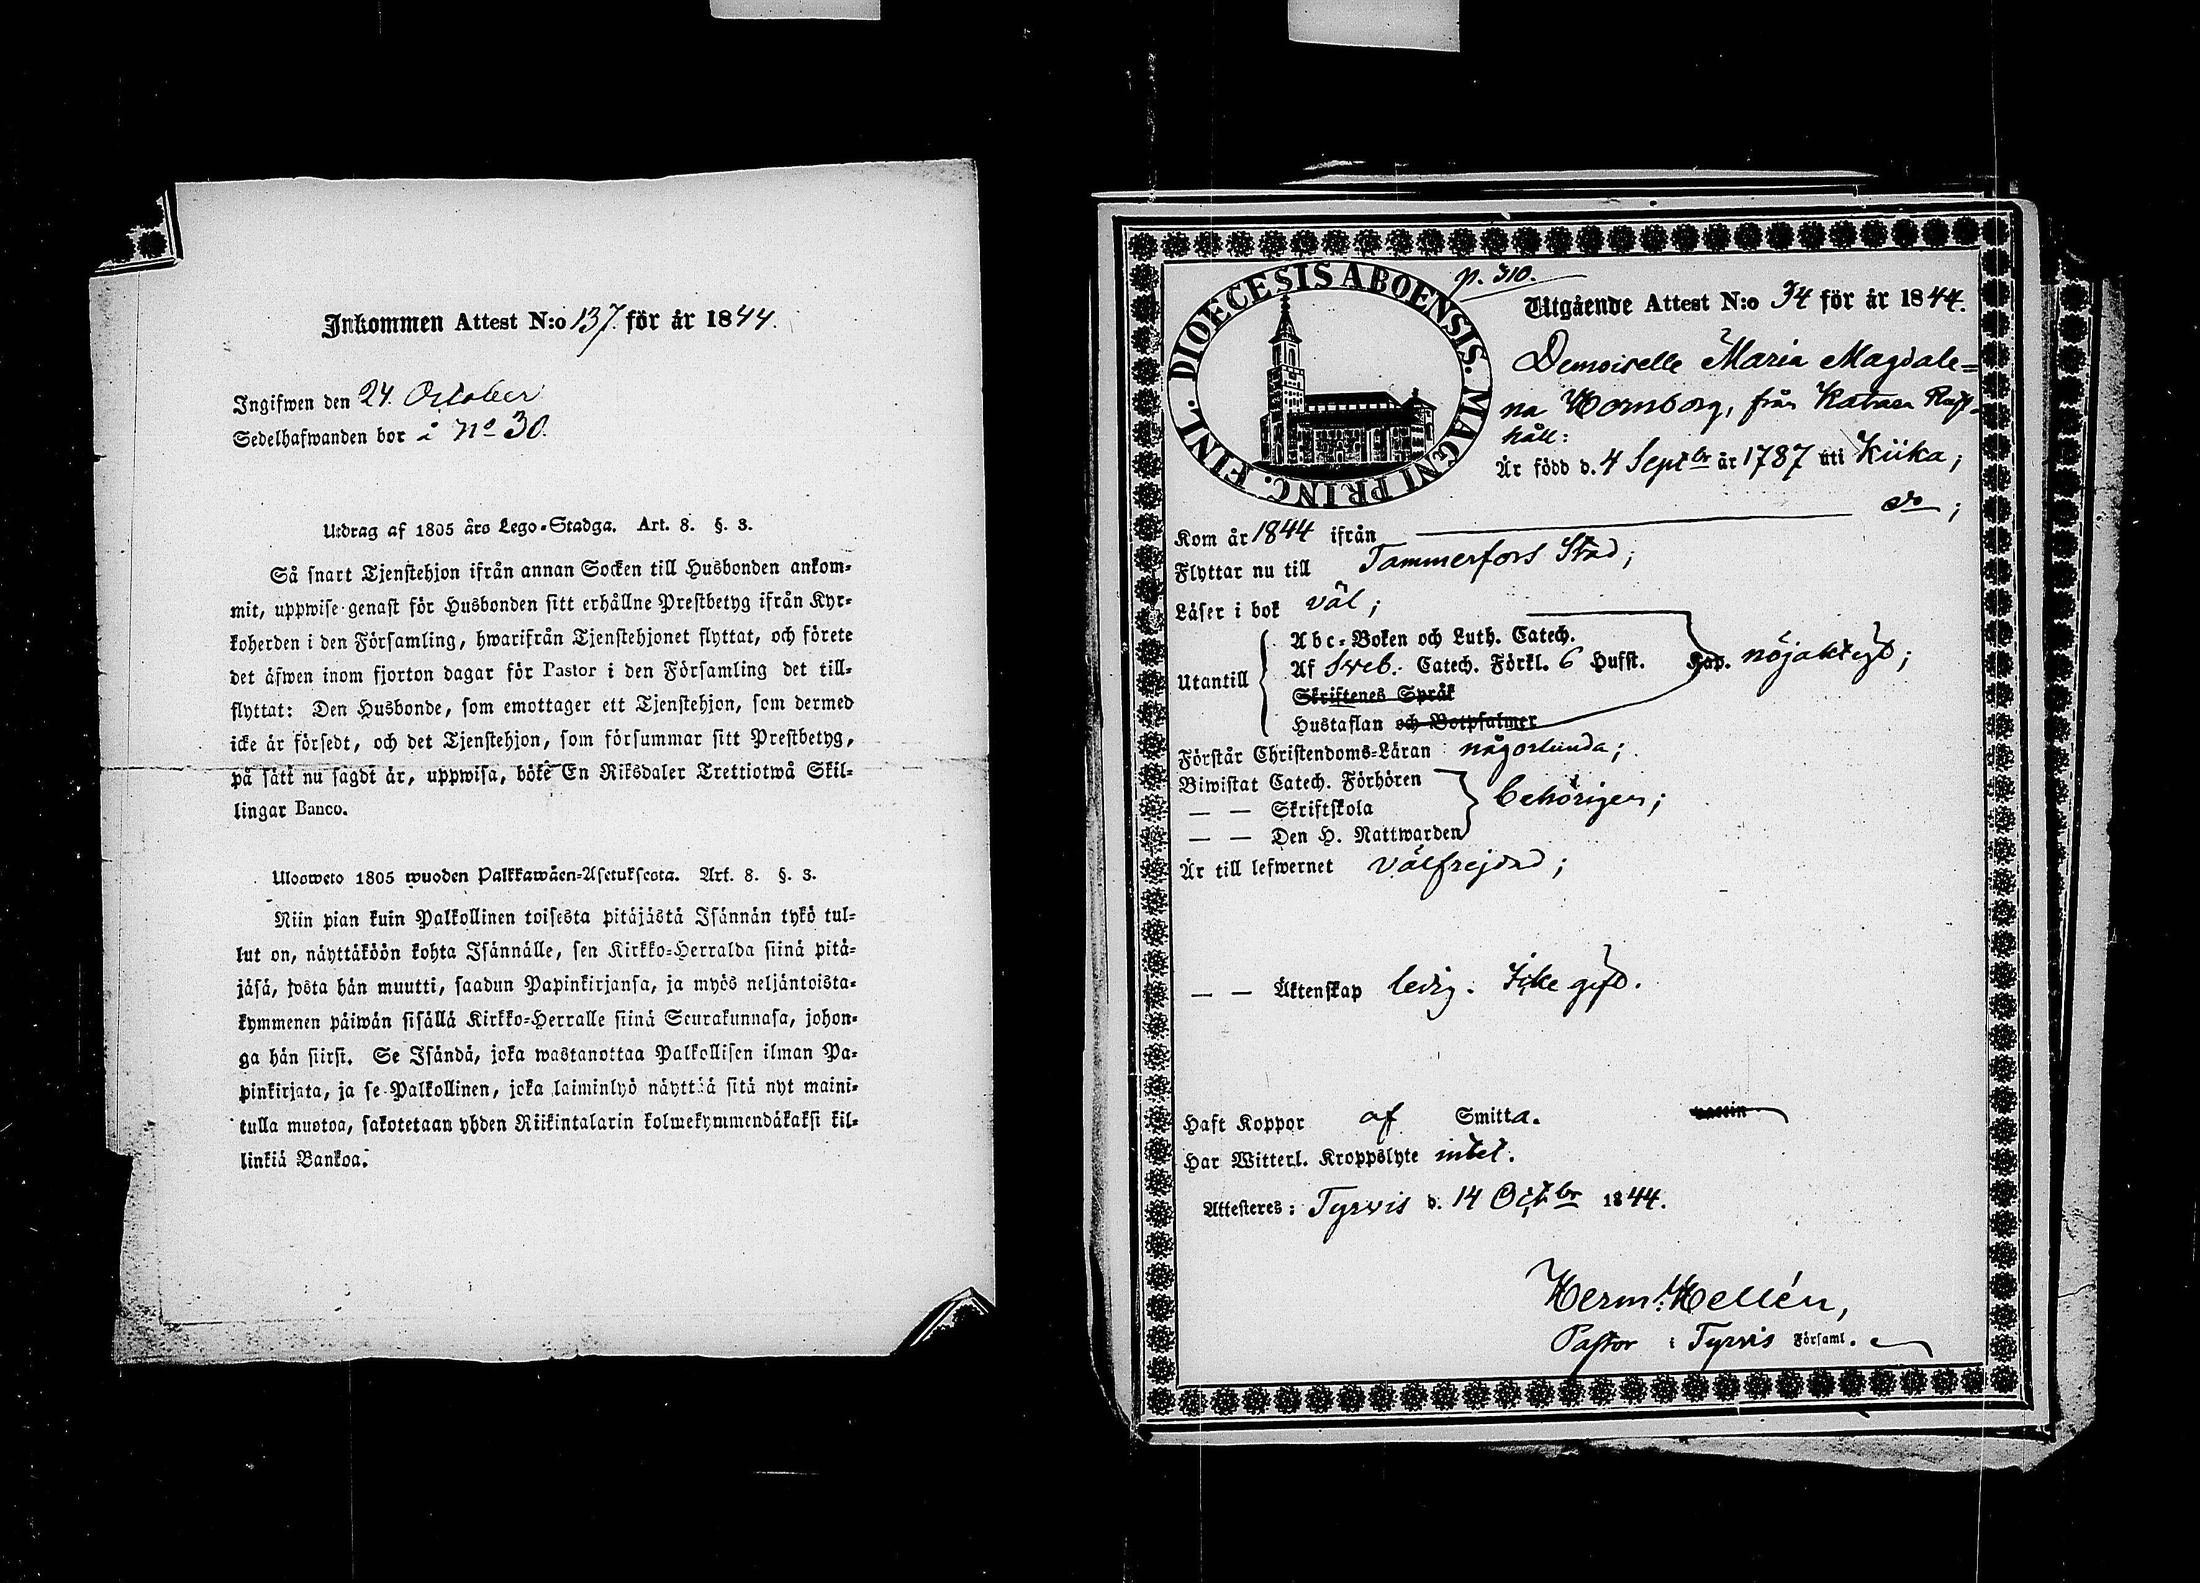 Inkommen Attest N:o 137. för år 1844.
Ingifwen den 24. October
Sedelhafwanden bor i No 30.
Utdrag af 1805 års Lego-Stadga. Art. 8. §. 3.
Så snart Tjenstehjon ifrån annan Socken till Husbonden ankom-
mit, uppwise genast för Husbonden sitt erhållne Prestbetyg ifrån Kyr-
koherden i den Församling, hwarifrån Tjenstehjonet flyttat, och förete
det äfwen inom fjorton dagar för Pastor i den Församling det till-
flyttat: Den Husbonde, som emottager ett Tjenstehjon, som dermed
icke är försedt, och det Tjenstehjon, som försummar sitt Prestbetyg,
på sätt nu sagdt är, uppwisa, böte En Riksdaler Trettiotwå Skil-
lingar Banco.
Ulosweto 1805 wuoden Palkkawäen-Asetuksesta. Art. 8. §. 3.
Niin pian kuin Palkollinen toisesta pitäjästä Isännän tykö tul-
lut on, näyttäköön kohta Isännälle, sen Kirkko-Herralda siinä pitä-
jäsä, josta hän muutti, saadun Papinkirjansa, ja myös neljäntoista-
kymmenen päiwän sisällä Kirkko-Herralle siinä Seurakunnasa, johon-
ga hän siirsi. Se Isändä, joka wastanottaa Palkollisen ilman Pa-
pinkirjata, ja se Palkollinen, joka laiminlyö näyttää sitä nyt maini-
tulla muotoa, sakotetaan yhden Riikintalarin kolmekymmendäkaksi kil-
linkiä Bankoa.
DIOECESIS ABOENSIS. MAGNI PRINC. FINL.
p. 310.
Utgående Attest N:o 34 för år 1844.
Demoiselle Maria Magdale=
na Hornborg, från Katara Rust-
håll:
Är född d. 4 Septbr år 1787 uti Kiika;
Kom år 1844 ifrån do;
Flyttar nu till Tammerfors Stad;
Läser i bok väl;
Utantill
Abc-Boken och Luth. Catech.
Af Sveb. Catech. Förkl. 6 Hufst. Kap. nöjaktigt;
Skriftenes Språk
Hustaflan och Botpsalmer
Förstår Christendoms-Läran någorlunda;
Biwistat Catech. Förhören
— — Skriftskola behörigen;
— — Den H. Nattwarden
Är till lefwernet välfrejdad;
— — Äktenskap ledig. Icke gift.
Haft Koppor af Smitta. vaccin
Har Witterl. Kroppslyte intet.
Attesteres: Tyrvis d. 14 Octbr 1844.
Herm. Hellén,
Pastor i Tyrvis Församl.